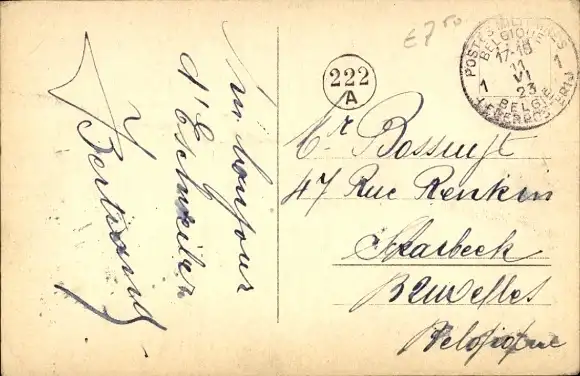 Un bonjour
d'Eschweiler
Bertrand
£7.50
222
A
POSTES MILITAIRES
BELGIQUE 1
17-18
11
VI
23
1 BELGIE
LEGERPOSTERIJ
Mr Bossuyt
47 Rue Renkin
Skarbeek
Bruxelles
Belgique